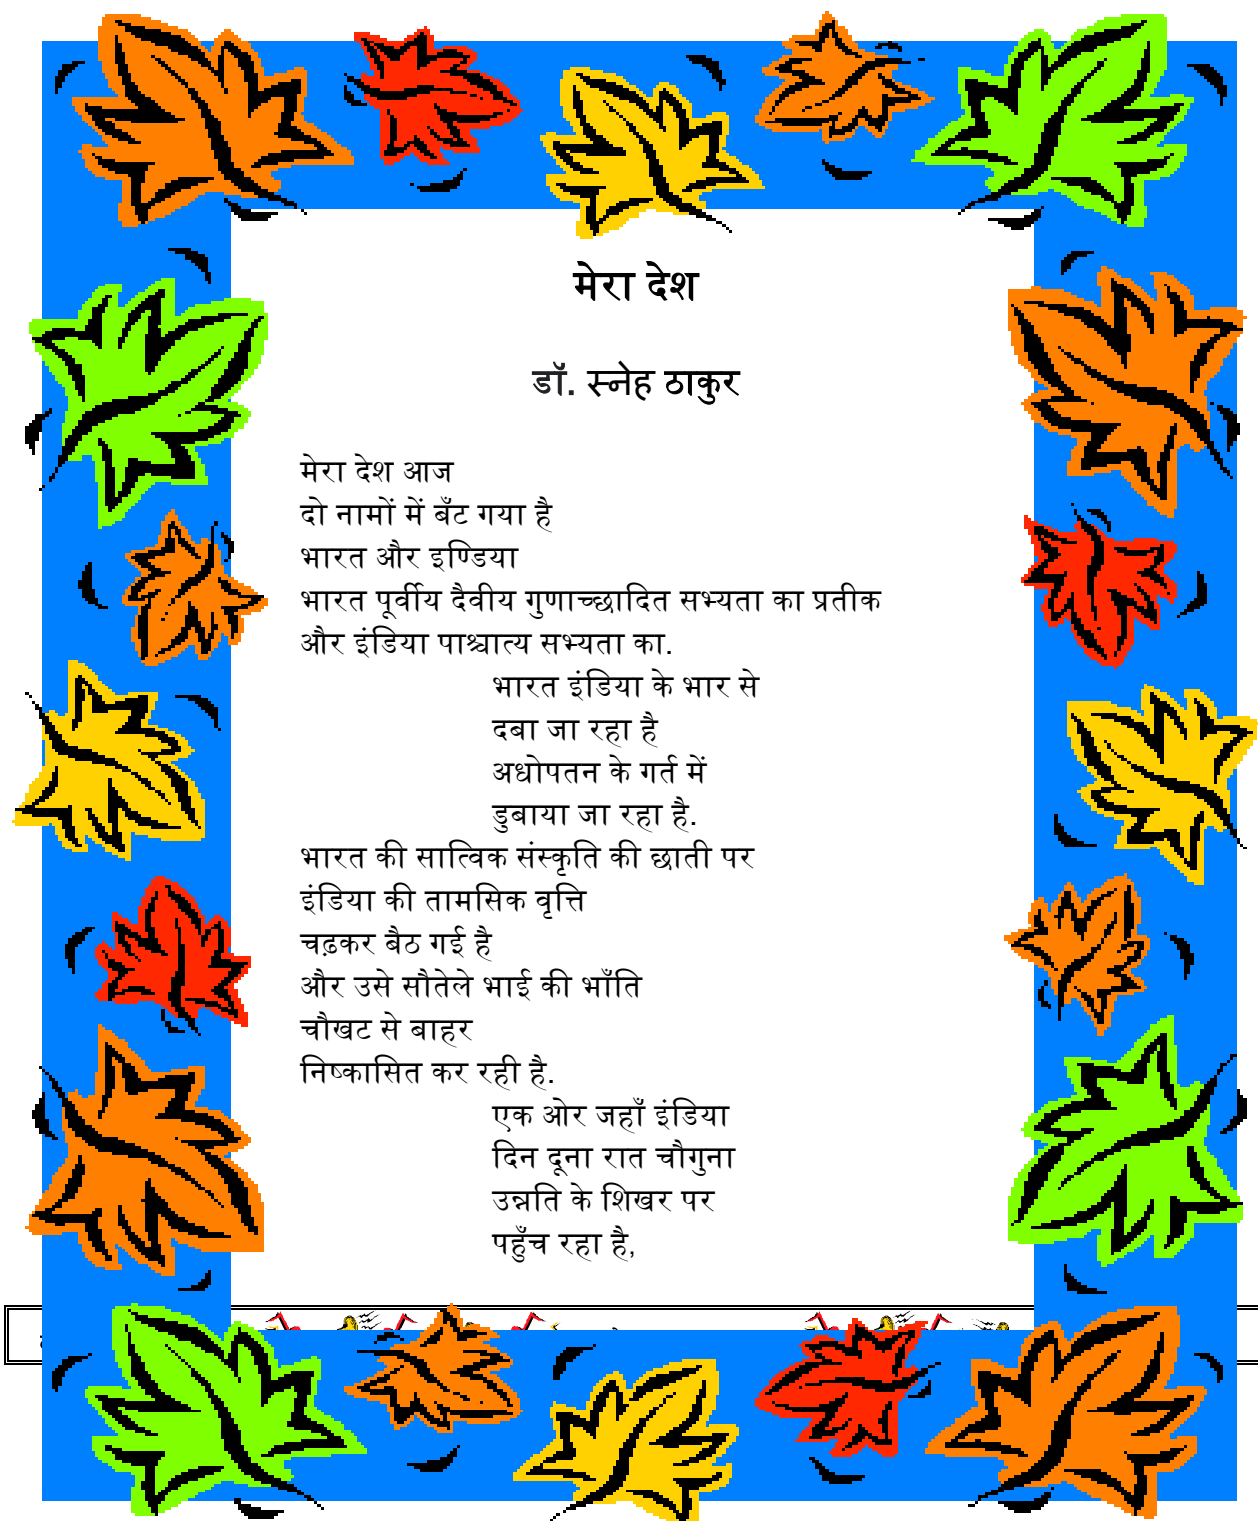 मेरा देश
डॉ. स्नेह ठाकुर
मेरा देश आज
दो नामों में बँट गया है
भारत और इण्डिया
भारत पूर्वीय दैवीय गुणाच्छादित सभ्यता का प्रतीक
और इंडिया पाश्चात्य सभ्यता का.
भारत इंडिया के भार से
दबा जा रहा है
अधोपतन के गर्त में
डुबाया जा रहा है.
भारत की सात्विक संस्कृति की छाती पर
इंडिया की तामसिक वृत्ति
चढ़कर बैठ गई है
और उसे सौतेले भाई की भाँति
चौखट से बाहर
निष्कासित कर रही है.
एक ओर जहाँ इंडिया
दिन दूना रात चौगुना
उन्नति के शिखर पर
पहुँच रहा है,